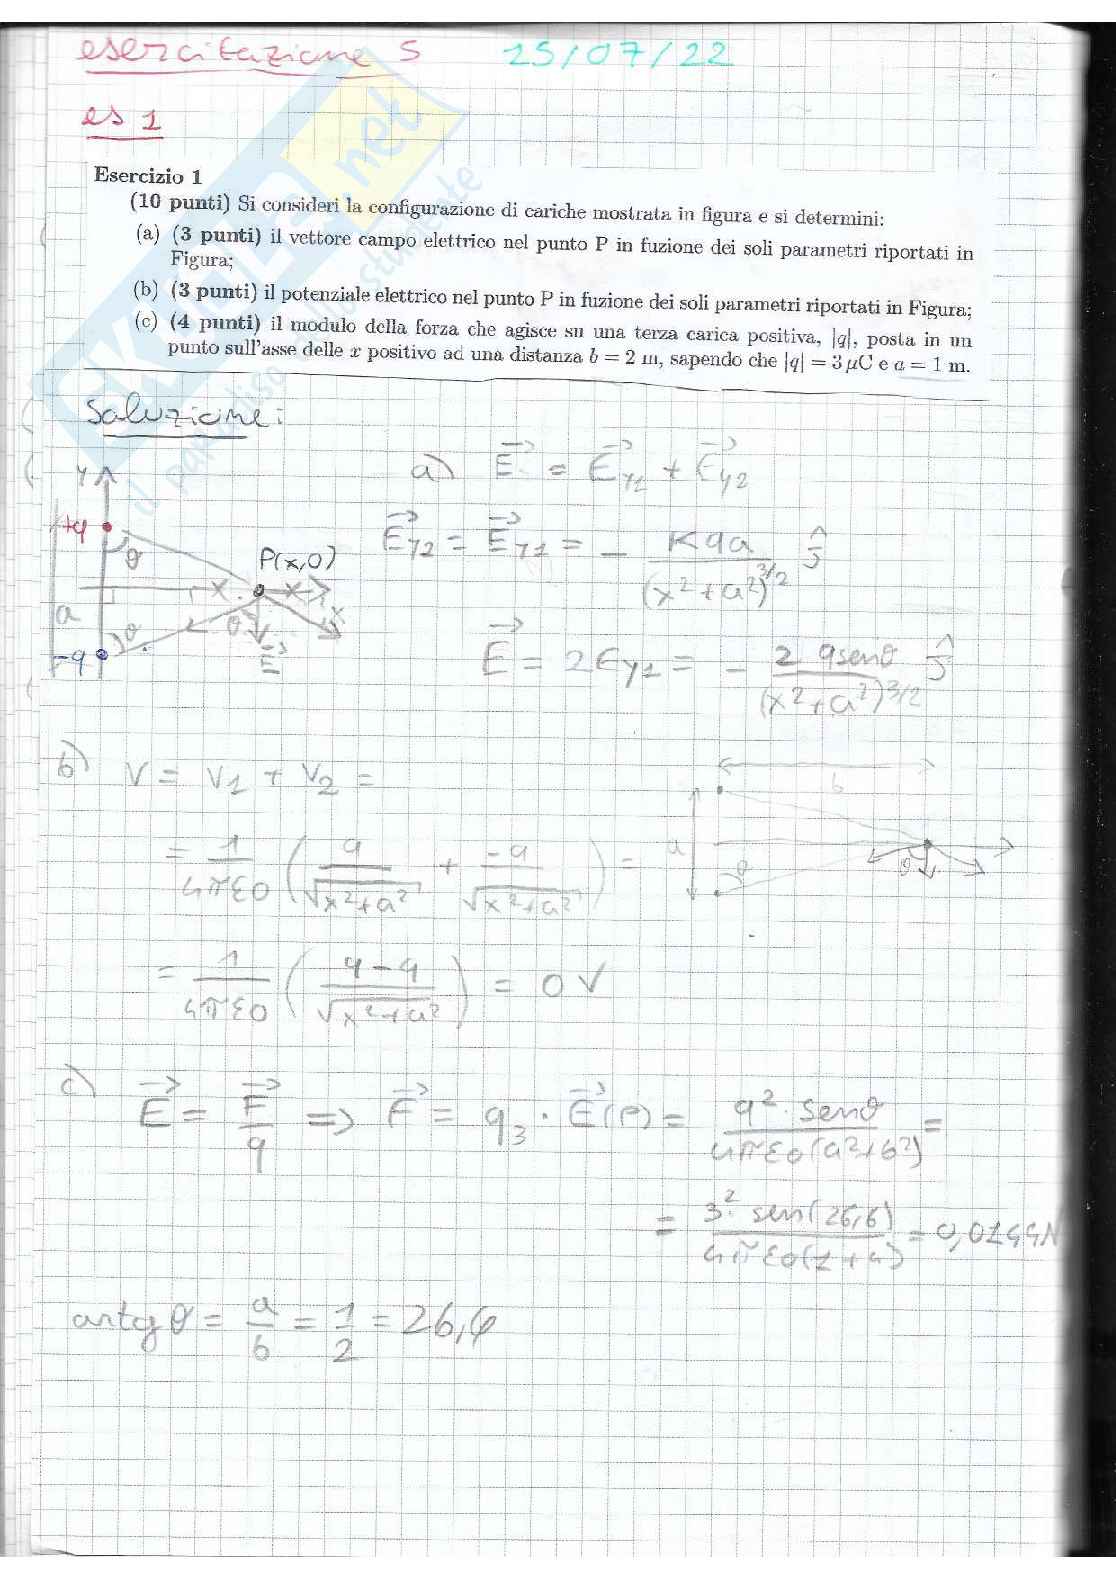 esercitazione 5 15/07/22
es 1
Esercizio 1
(10 punti) Si consideri la configurazione di cariche mostrata in figura e si determini:
(a) (3 punti) il vettore campo elettrico nel punto P in fuzione dei soli parametri riportati in
Figura;
(b) (3 punti) il potenziale elettrico nel punto P in fuzione dei soli parametri riportati in Figura;
(c) (4 punti) il modulo della forza che agisce su una terza carica positiva, |q|, posta in un
punto sull'asse delle x positivo ad una distanza b = 2 m, sapendo che |q| = 3 μC e a = 1 m.
SKUOLA.net
il paradiso dello studente
Soluzione:
a) E⃗ = E⃗y1 + E⃗y2
y
+q
θ
P(x,0)
x
x
x
a
θ
θ
E⃗
-q
E⃗y2 = E⃗y1 = - Kqa / (x²+a²)^3/2 ĵ
E⃗ = 2Ey1 = - 2 qsenθ / (x²+a²)^3/2 ĵ
b) V = V1 + V2 =
b
a
θ
θ
= 1/4πε0 ( q/√x²+a² + -q/√x²+a² ) =
= 1/4πε0 ( q-q/√x²+a² ) = 0 V
c) E⃗ = F⃗/q => F⃗ = q3 · E⃗(P) = q² · senθ / 4πε0(a²+b²) =
= 3² · sen(26,6) / 4πε0(1+4) = 0,0144N
artgθ = a/b = 1/2 = 26,6